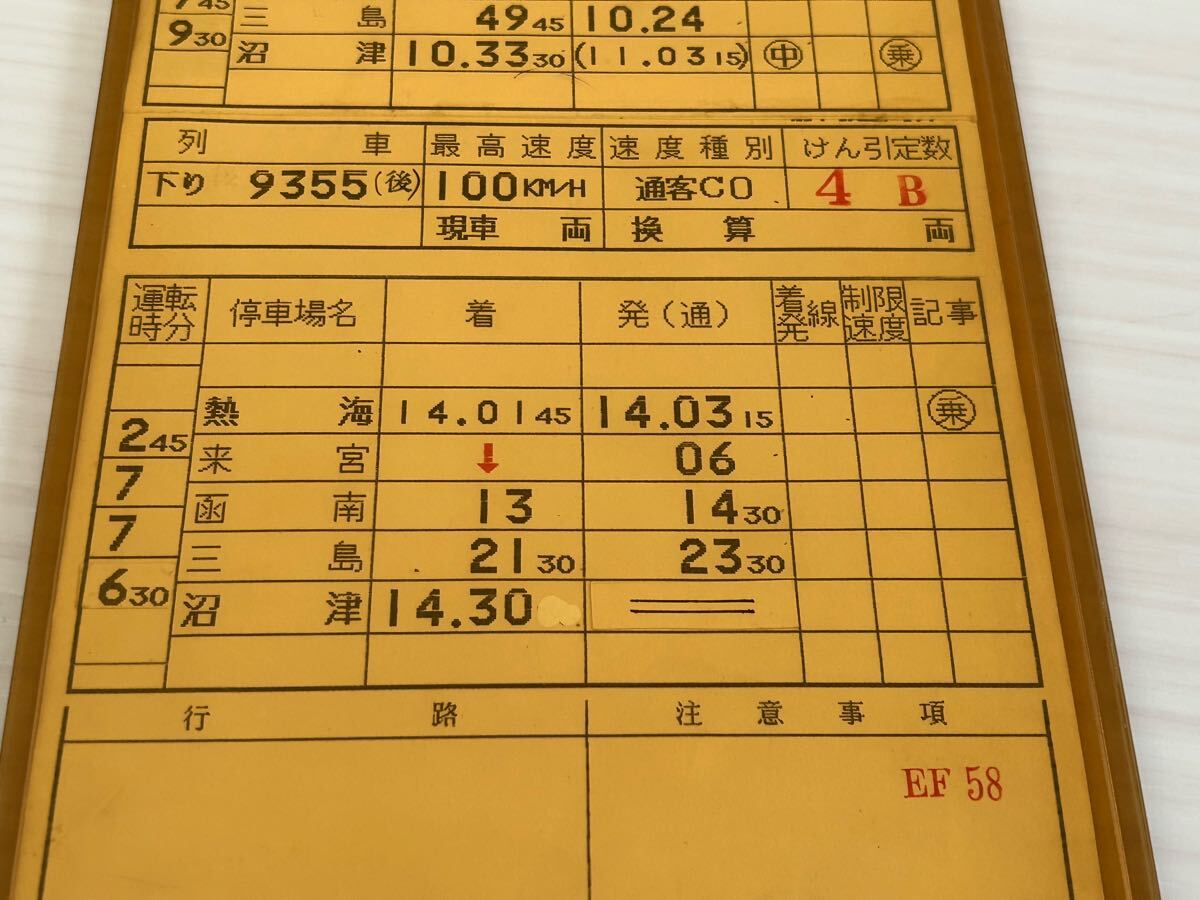 三島 49 45 10.24
9 30 沼津 10.33 30 (11.03 15) 中 乗
列車 最高速度 速度種別 けん引定数
下り 9355(後) 100KM/H 通客C0 4 B
現車 両 換算 両
運転時分 停車場名 着 発(通) 着発線 制限速度 記事
熱海 14.01 45 14.03 15 乗
2 45
来宮 ↓ 06
7
函南 13 14 30
7
三島 21 30 23 30
6 30
沼津 14.30 ＝
行路 注意事項
EF 58